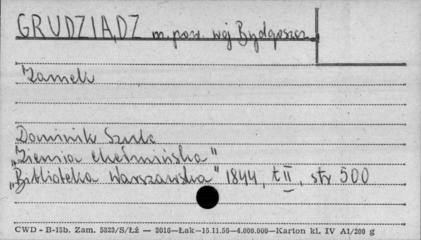 GRUDZIĄDZ m. pow. woj Bydgoszcz
Zamek
Dominik Szulc
"Ziemia chełmińska"
"Biblioteka Warszawska" 1844, t II, str 500
CWD - B-15b. Zam. 5823/S/Łż — 2016—Łak—15.11.56—4.000.000—Karton kl. IV A1/200 g